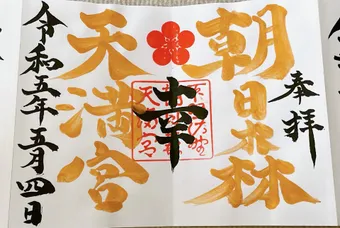 奉拝
朝日森
天満宮
幸
令和五年五月四日